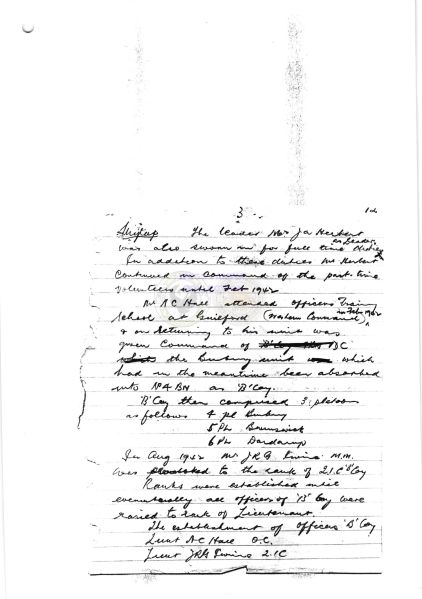 3
The leader Mr J A Herbert
was also sworn in for full time duties
as Leader.
In addition to these duties Mr Herbert
continued in command of the part-time
volunteers until Feb 1942
Mr A C Hall attended officers Training
School at Guildford (Western Command) in Feb 1942
& on returning to his unit was
given command of
the Bunbury unit which
had in the meantime been absorbed
into No 4 BN as 'B' Coy.
'B' Coy then comprised 3 platoons
as follows 4 pl Bunbury
5 Pl. Brunswick
6 Pl. Dardanup
In Aug 1942 Mr J R G M.M.
was to the rank of 2.I.C 'B' Coy
Ranks were established until
eventually all officers of 'B' Coy were
raised to rank of Lieutenant.
The establishment of officers 'B' Coy
Lieut A C Hall O.C.
Lieut J R G 2.I.C